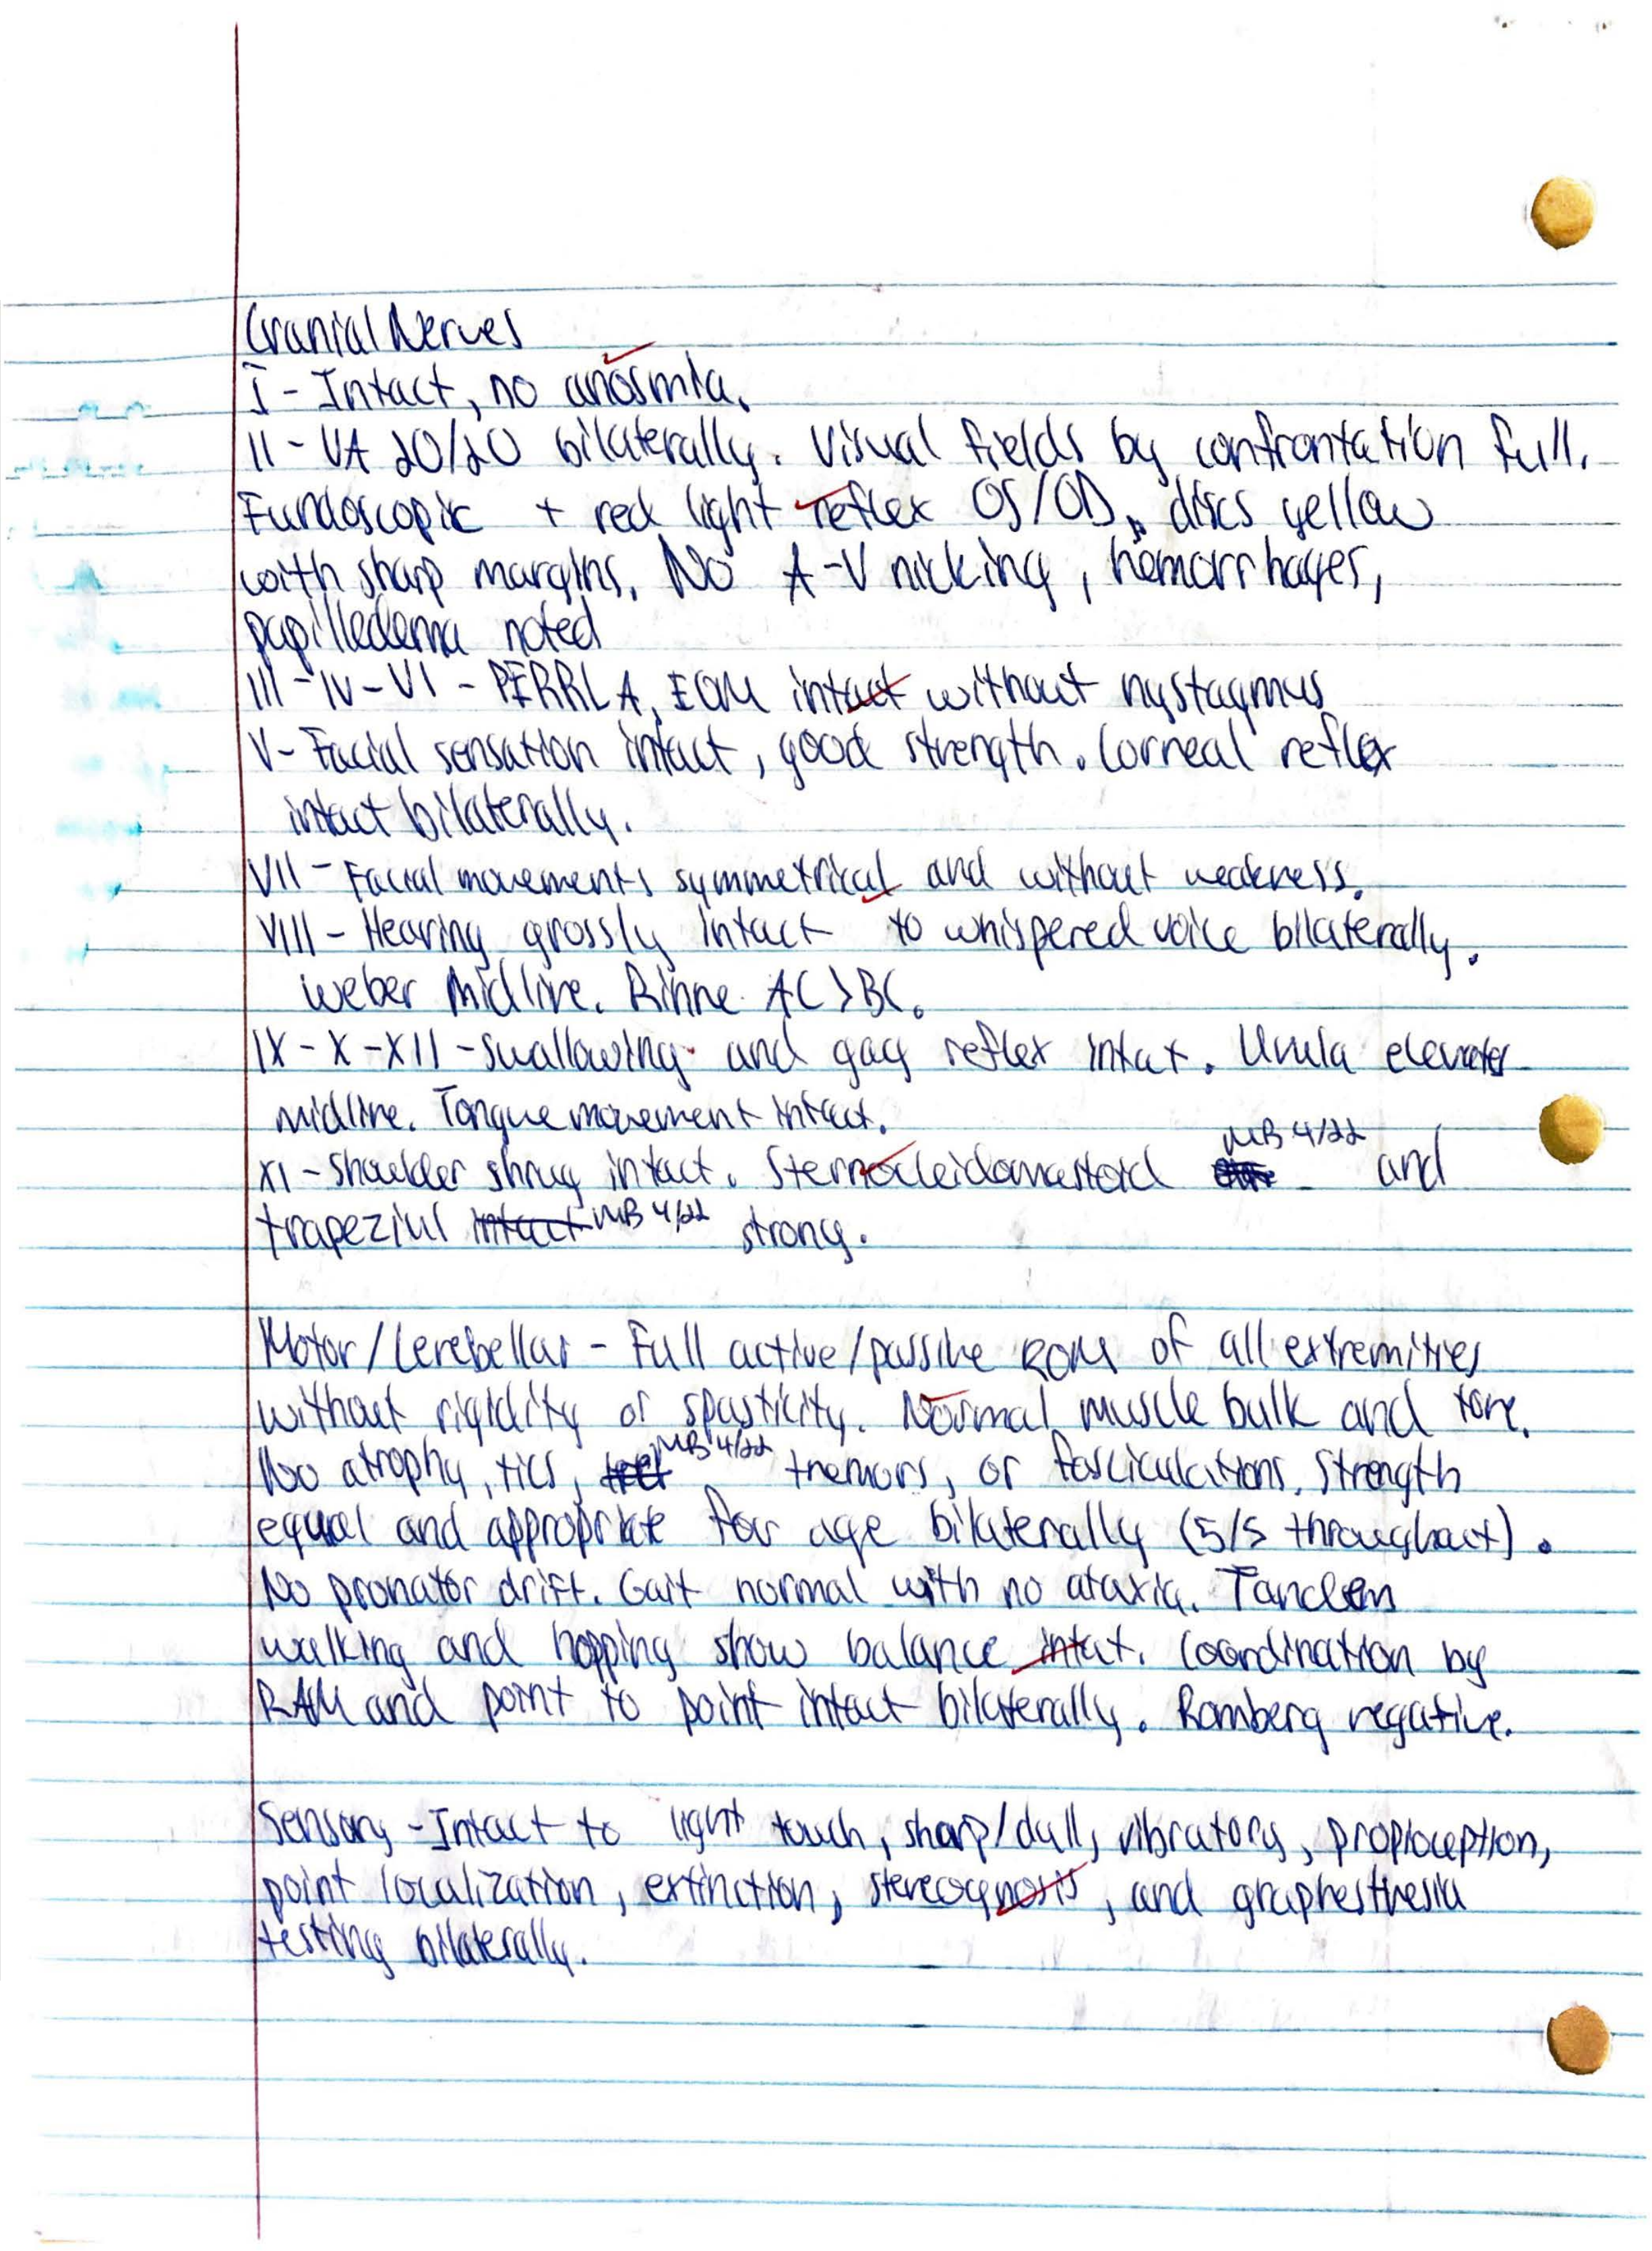 Cranial Nerves
I - Intact, no anosmia.
II - VA 20/20 bilaterally. Visual fields by confrontation full.
Fundoscopic + red light reflex OS/OD, discs yellow
with sharp margins. No A-V nicking, hemorrhages,
papilledema noted
III - IV - VI - PERRLA, EOM intact without nystagmus
V - Facial sensation intact, good strength. Corneal reflex
intact bilaterally.
VII - Facial movements symmetrical and without weakness.
VIII - Hearing grossly intact to whispered voice bilaterally.
Weber Midline. Rinne AC>BC.
IX - X - XII - Swallowing and gag reflex intact. Uvula elevates
midline. Tongue movement intact.
MB 4/22
XI - Shoulder shrug intact. Sternocleidomastoid and
trapezius intact MB 4/22 strong.
Motor/Cerebellar - Full active/passive ROM of all extremities
without rigidity or spasticity. Normal muscle bulk and tone.
MB 4/22
No atrophy, tics, tremors, or fasciculations. Strength
equal and appropriate for age bilaterally (5/5 throughout).
No pronator drift. Gait normal with no ataxia. Tandem
walking and hopping show balance intact. Coordination by
RAM and point to point intact bilaterally. Romberg negative.
Sensory - Intact to light touch, sharp/dull, vibratory, proprioception,
point localization, extinction, stereognosis, and graphesthesia
testing bilaterally.